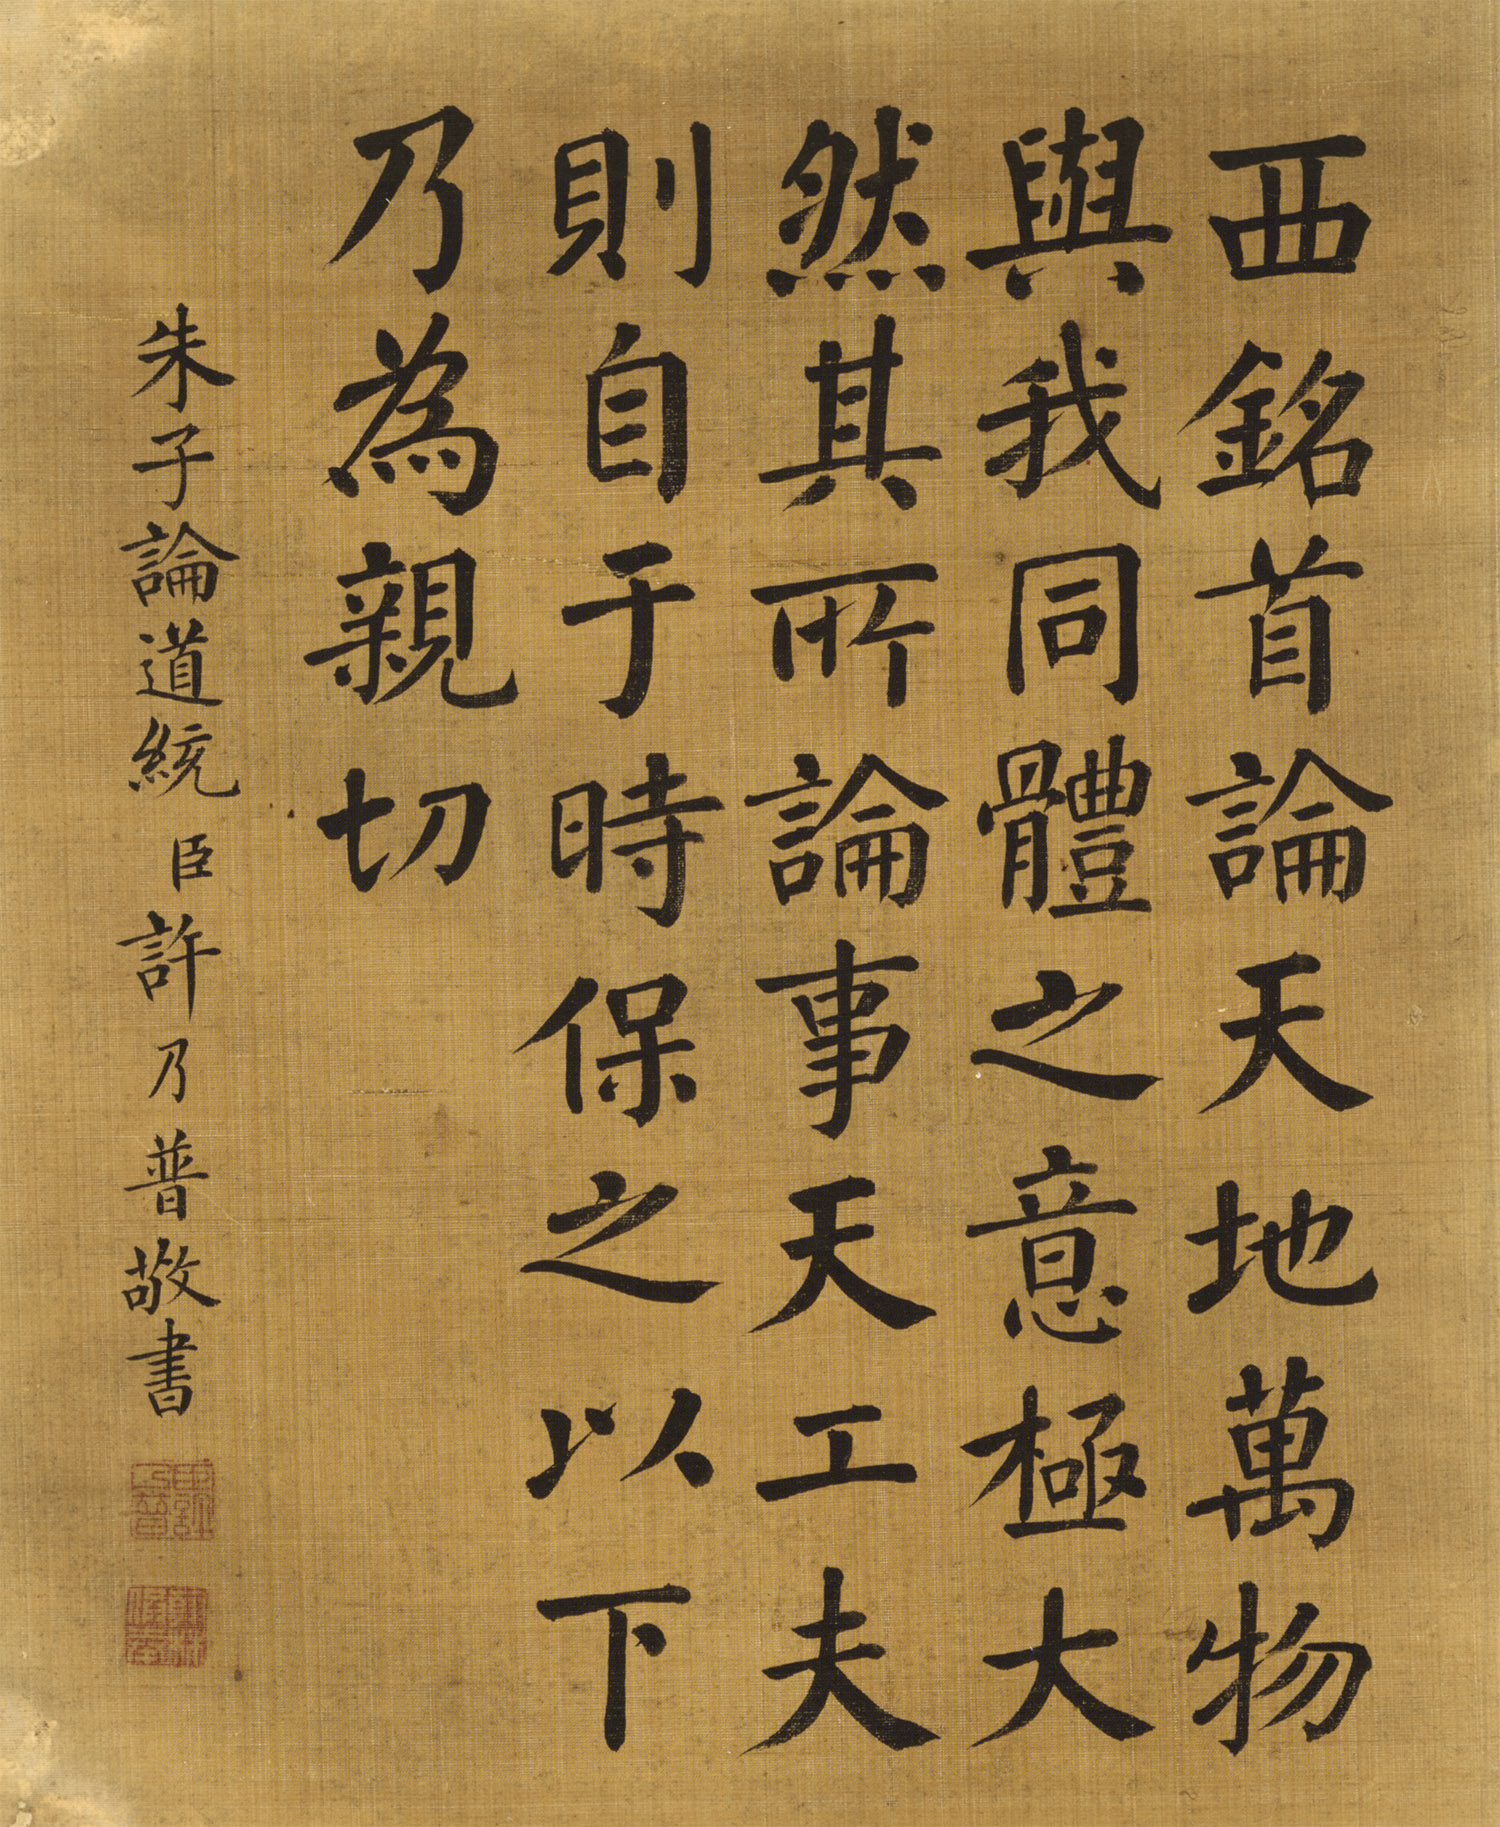 西銘首論天地萬物
與我同體之意極大
然其所論事天工夫
則自于時保之以下
乃為親切
朱子論道統 臣許乃普敬書